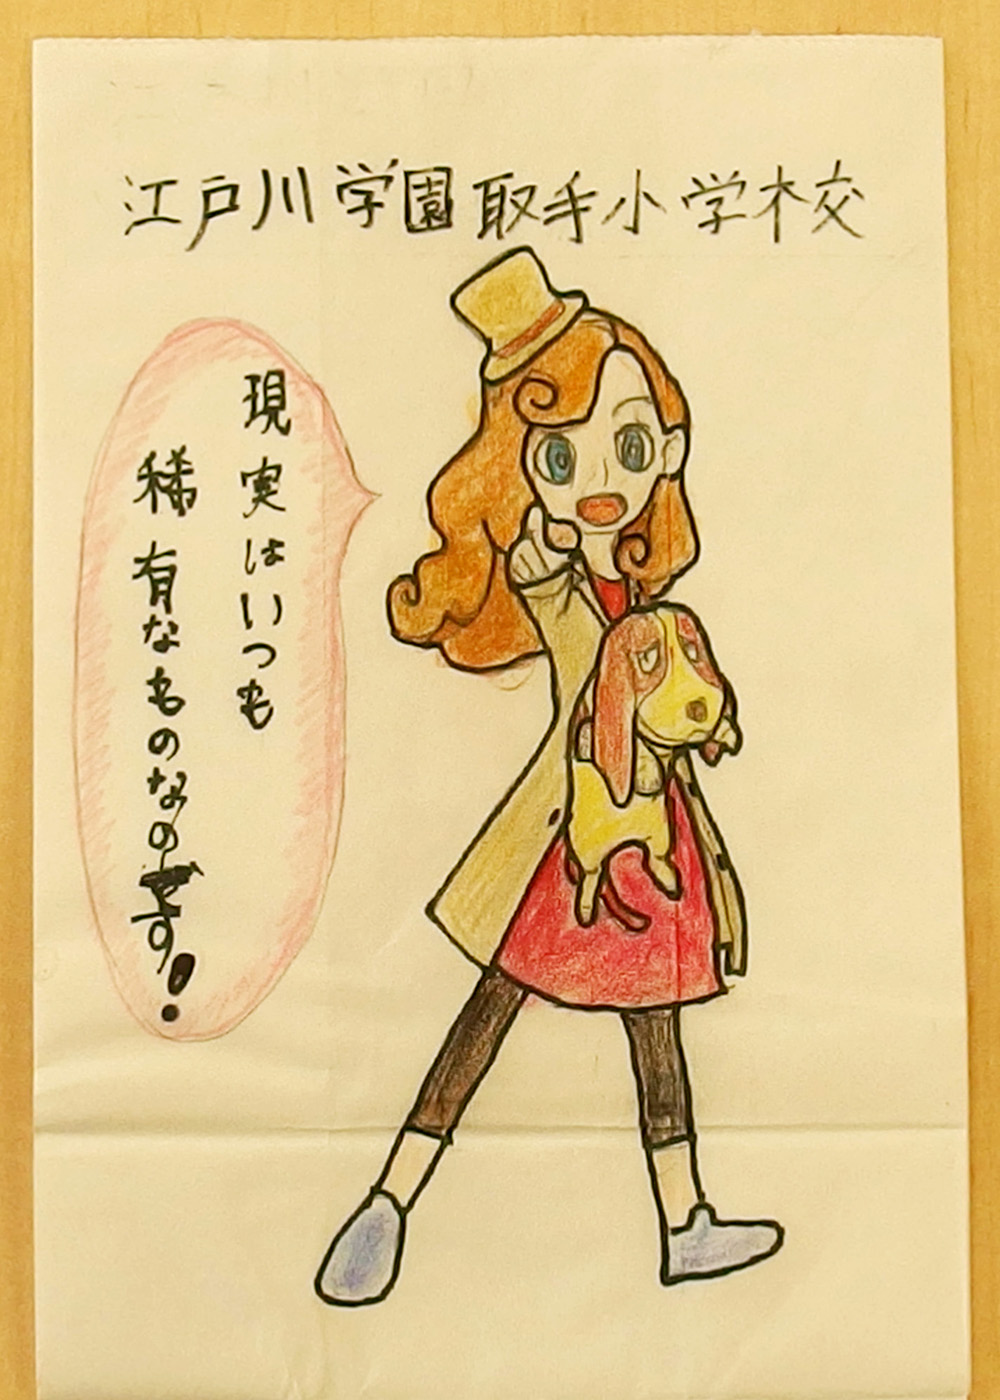 江戸川学園取手小学校
現実はいつも
稀有なものなのです!